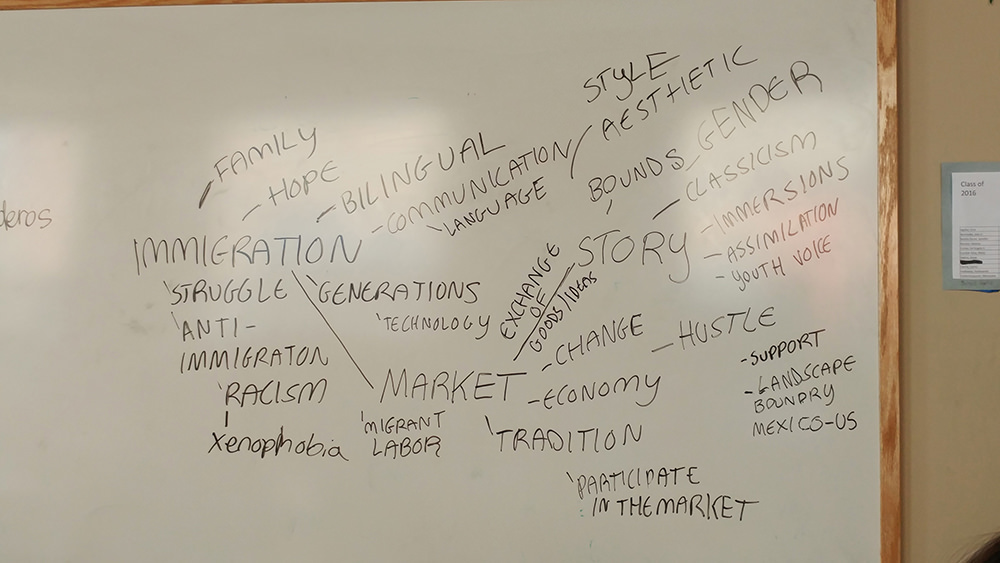 STYLE
AESTHETIC
FAMILY
- HOPE
- BILINGUAL
- COMMUNICATION
LANGUAGE
BOUNDS
GENDER
CLASSICISM
deros
IMMIGRATION
STORY
- IMMERSIONS
- ASSIMILATION
- YOUTH VOICE
STRUGGLE
GENERATIONS
TECHNOLOGY
ANTI-
IMMIGRATON
RACISM
Xenophobia
EXCHANGE
OF
GOODS/IDEAS
MARKET
- CHANGE
- HUSTLE
- ECONOMY
MIGRANT
LABOR
TRADITION
PARTICIPATE
IN THE MARKET
- SUPPORT
- LANDSCAPE
BOUNDRY
MEXICO-US
Class of
2016